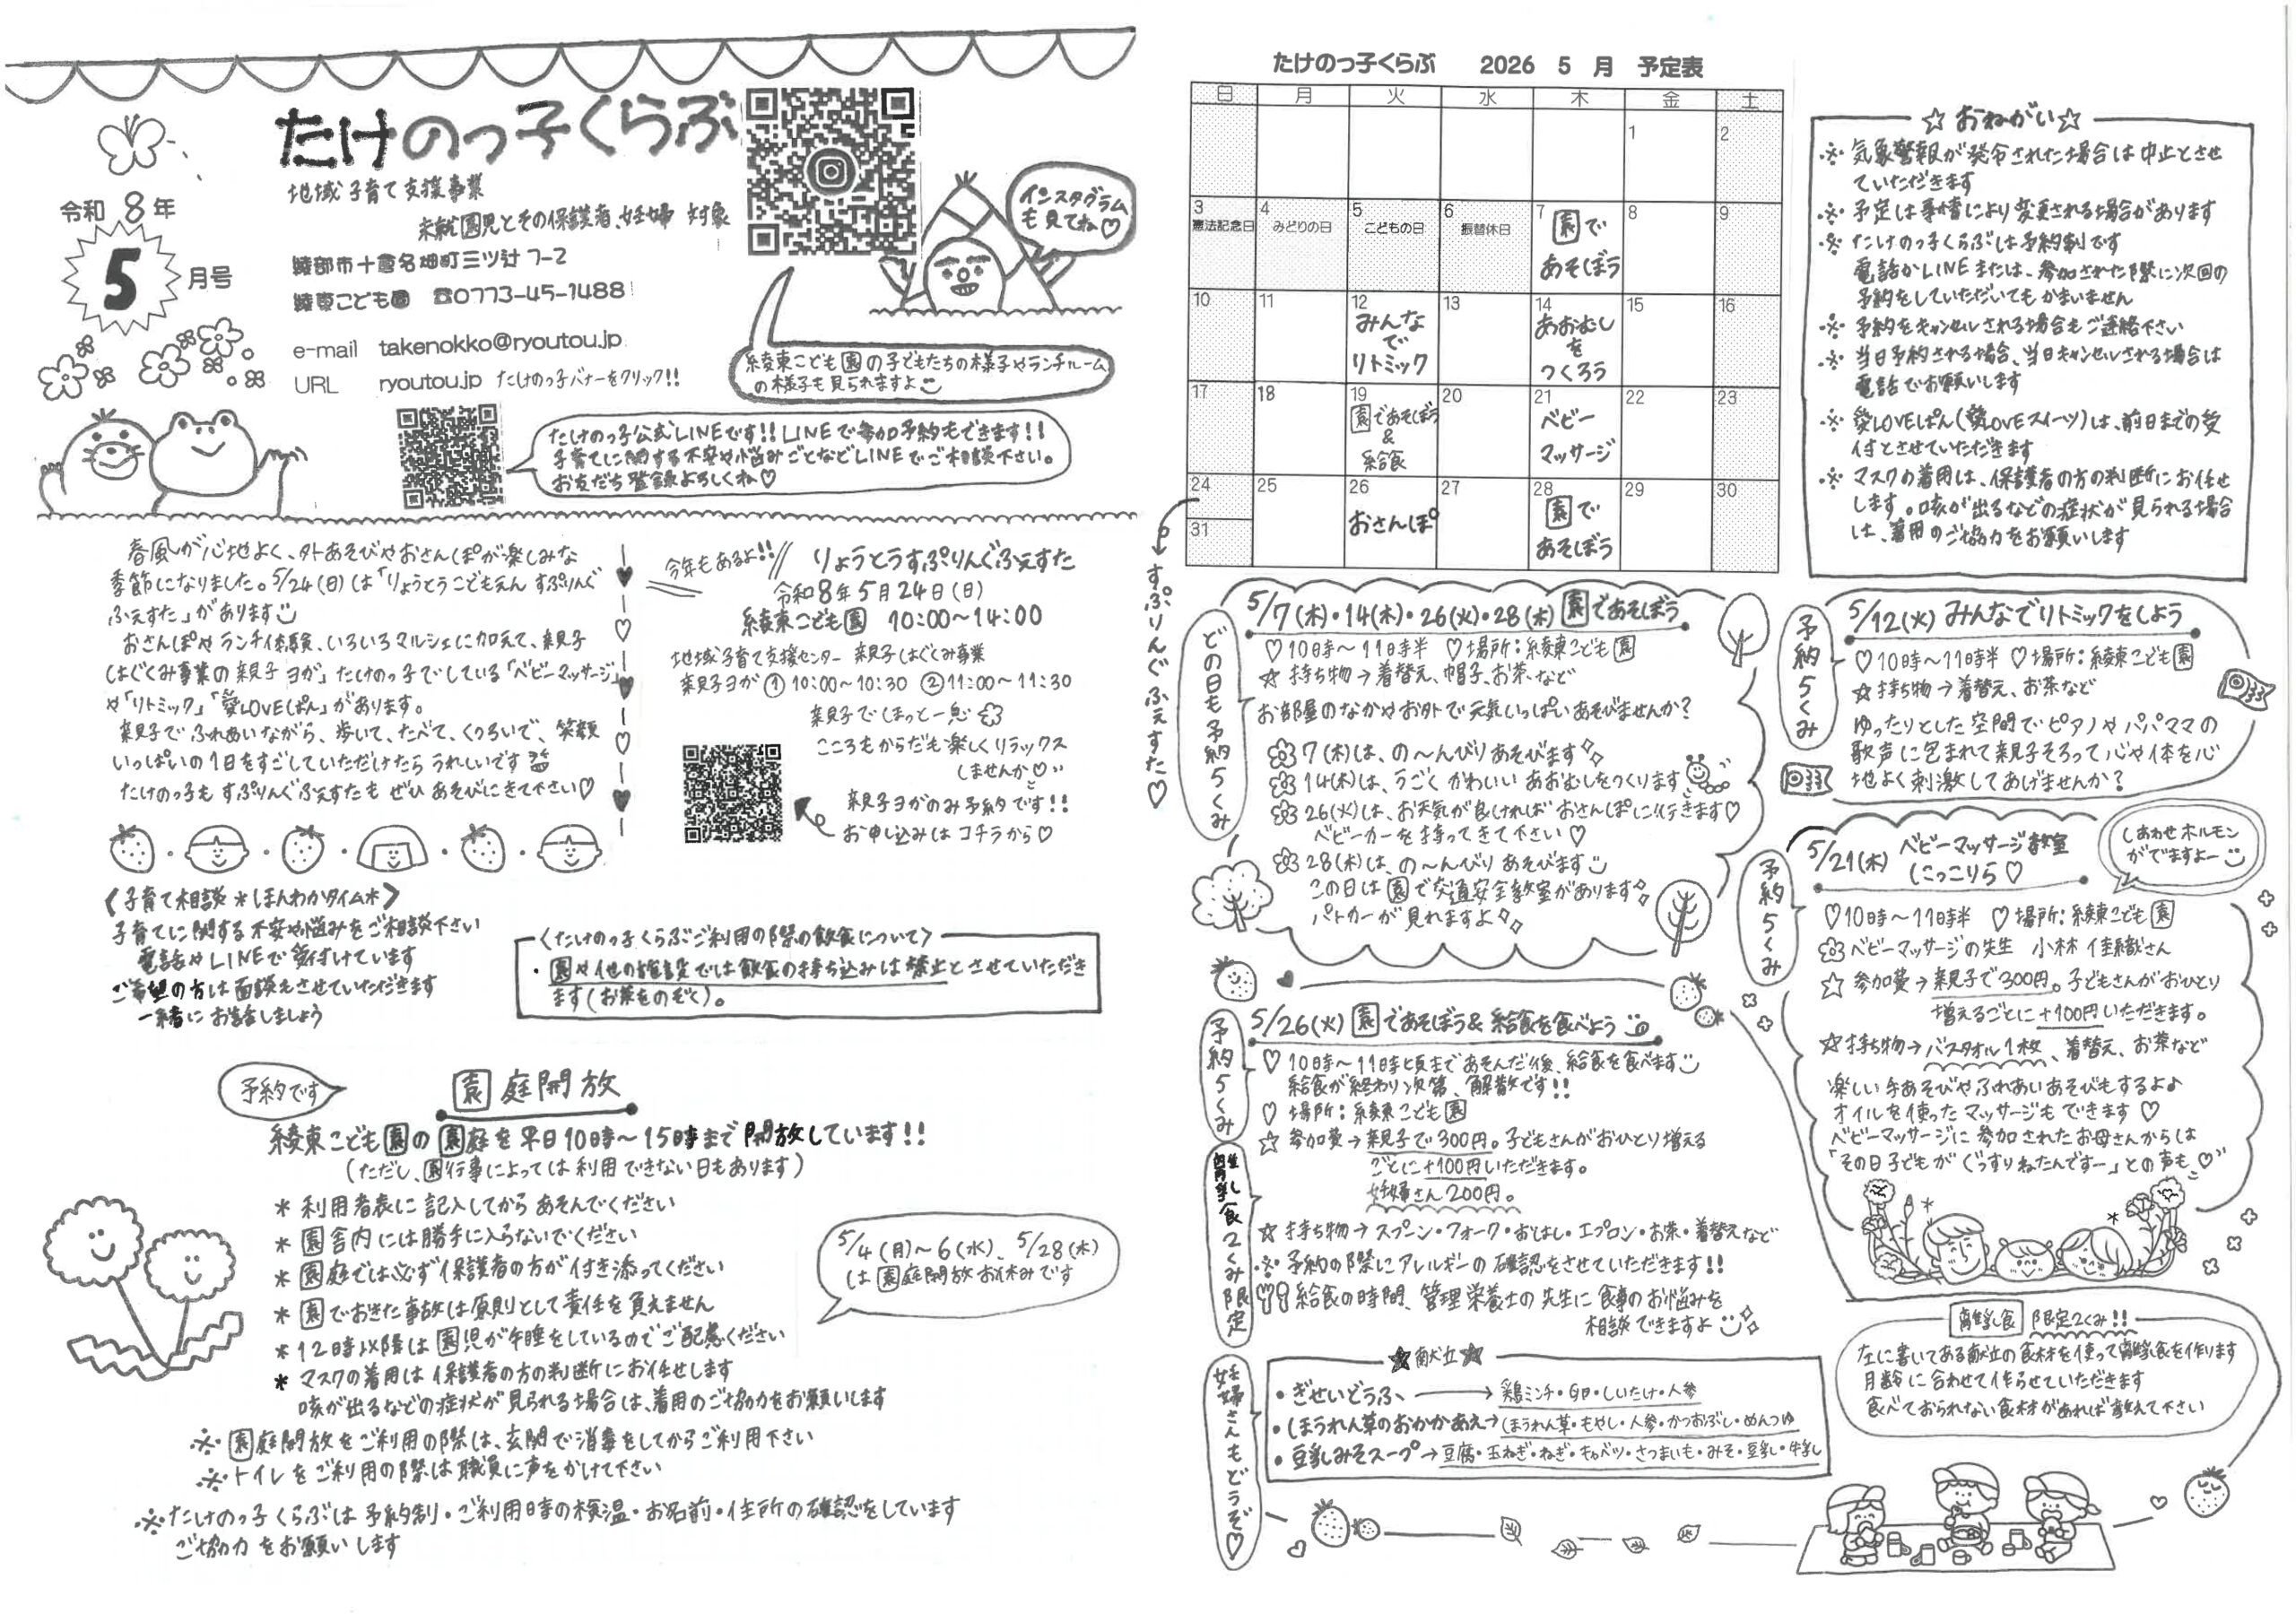 たけのっ子くらぶ
令和8年
5
月号
地域子育て支援事業
未就園児とその保護者、妊婦 対象
綾部市十倉名畑町三ツ辻7-2
綾東こども園 ☎0773-45-1488
e-mail takenokko@ryoutou.jp
URL ryoutou.jp たけのっ子バナーをクリック!!
インスタグラム
も見てね♡
綾東こども園の子どもたちの様子やランチルーム
の様子も見られますよ
たけのっ子公式LINEです!! LINEで参加予約もできます!!
子育てに関する不安や悩みごとなどLINEでご相談下さい。
お友だち登録よろしくね♡
春風が心地よく、外あそびやおさんぽが楽しみな
季節になりました。5/24(日)は「りょうとうこどもえん すぷりんぐ
ふぇすた」があります
おさんぽやランチ体験、いろいろマルシェに加えて、親子
はぐくみ事業の親子ヨガ」たけのっ子でしている「ベビーマッサージ」
や「リトミック」「愛LOVEぱん」があります。
親子でふれあいながら、歩いて、たべて、くつろいで、笑顔
いっぱいの1日をすごしていただけたらうれしいです
たけのっ子も すぷりんぐふぇすたも ぜひ あそびにきて下さい♡
今年もあるよ!!
りょうとうすぷりんぐふぇすた
令和8年5月24日(日)
綾東こども園 10:00~14:00
地域子育て支援センター 親子はぐくみ事業
親子ヨガ ①10:00~10:30 ②11:00~11:30
親子でほっと一息
こころもからだも楽しくリラックス
しませんか♡
親子ヨガのみ予約です!!
お申し込みはコチラから♡
〈子育て相談 *ほんわかタイム*〉
子育てに関する不安や悩みをご相談下さい
電話やLINEで受付けています
ご希望の方は面談もさせていただきます
一緒にお話しましょう
〈たけのっ子くらぶご利用の際の飲食について〉
・園や他の施設では飲食の持ち込みは禁止とさせていただき
ます(お茶をのぞく)。
予約です
園庭開放
綾東こども園の園庭を平日10時~15時まで開放しています!!
(ただし、園行事によっては利用できない日もあります)
* 利用者表に記入してからあそんでください
* 園舎内には勝手に入らないでください
* 園庭では必ず保護者の方が付き添ってください
* 園でおきた事故は原則として責任を負えません
* 12時以降は園児が午睡をしているのでご配慮ください
* マスクの着用は保護者の方の判断にお任せします
咳が出るなどの症状が見られる場合は、着用のご協力をお願いします
※園庭開放をご利用の際は、玄関で消毒をしてからご利用下さい
※トイレをご利用の際は職員に声をかけて下さい
※たけのっ子くらぶは予約制・ご利用時の検温・お名前・住所の確認をしています
ご協力をお願いします
5/4(月)~6(水)、5/28(木)
は園庭開放お休みです
たけのっ子くらぶ 2026 5 月 予定表
日 月 火 水 木 金 土
1 2
3 憲法記念日
4 みどりの日
5 こどもの日
6 振替休日
7 園で
あそぼう
8 9
10 11
12 みんな
で
リトミック
13
14 あおむし
を
つくろう
15 16
17 18
19 園であそぼう
&
給食
20
21 ベビー
マッサージ
22 23
24 25
26 おさんぽ
27
28 園で
あそぼう
29 30
31
すぷりんぐふぇすた♡
☆おねがい☆
※気象警報が発令された場合は中止とさせ
ていただきます
※予定は事情により変更される場合があります
※たけのっ子くらぶは予約制です
電話かLINEまたは、参加された際に次回の
予約をしていただいてもかまいません
※予約をキャンセルされる場合もご連絡下さい
※当日予約される場合、当日キャンセルされる場合は
電話でお願いします
※愛LOVEぱん(愛LOVEスイーツ)は、前日までの受
付とさせていただきます
※マスクの着用は、保護者の方の判断にお任せ
します。咳が出るなどの症状が見られる場合
は、着用のご協力をお願いします
どの日も予約5くみ
5/7(木)・14(木)・26(火)・28(木) 園であそぼう
♡10時~11時半 ♡場所:綾東こども園
☆持ち物→着替え、帽子、お茶、など
お部屋のなかやお外で元気いっぱいあそびませんか?
7(木)は、の~んびりあそびます
14(木)は、うごくかわいいあおむしをつくります
26(火)は、お天気が良ければおさんぽに行きます♡
ベビーカーを持ってきて下さい♡
28(木)は、の~んびりあそびます
この日は園で交通安全教室があります
パトカーが見れますよ
予約5くみ
5/12(火) みんなでリトミックをしよう
♡10時~11時半 ♡場所:綾東こども園
☆持ち物→着替え、お茶など
ゆったりとした空間でピアノやパパママの
歌声に包まれて親子そろって心や体を心
地よく刺激してあげませんか?
予約5くみ
5/21(木) ベビーマッサージ教室
にっこりら♡
しあわせホルモン
がでますよー
♡10時~11時半 ♡場所:綾東こども園
ベビーマッサージの先生 小林 佳織さん
☆参加費→親子で300円。子どもさんがおひとり
増えるごとに+100円いただきます。
☆持ち物→バスタオル1枚、着替え、お茶など
楽しい手あそびやふれあいあそびもするよ♪
オイルを使ったマッサージもできます♡
ベビーマッサージに参加されたお母さんからは
「その日子どもがぐっすりねたんですー」との声も♡
予約5くみ
離乳食2くみ限定
妊婦さんもどうぞ♡
5/26(火) 園であそぼう&給食を食べよう
♡10時~11時頃まであそんだ後、給食を食べます
給食が終わり次第、解散です!!
♡場所:綾東こども園
☆参加費→親子で300円。子どもさんがおひとり増える
ごとに+100円いただきます。
妊婦さん200円。
☆持ち物→スプーン・フォーク・おはし・エプロン・お茶・着替えなど
※予約の際にアレルギーの確認をさせていただきます!!
給食の時間、管理栄養士の先生に食事のお悩みを
相談できますよ
★献立★
・ぎせいどうふ→鶏ミンチ・卵・しいたけ・人参
・ほうれん草のおかかあえ→ほうれん草・もやし・人参・かつおぶし・めんつゆ
・豆乳みそスープ→豆腐・玉ねぎ・ねぎ・キャベツ・さつまいも・みそ・豆乳・牛乳
離乳食 限定2くみ!!
左に書いてある献立の食材を使って離乳食を作ります
月齢に合わせて作らせていただきます
食べておられない食材があれば教えて下さい